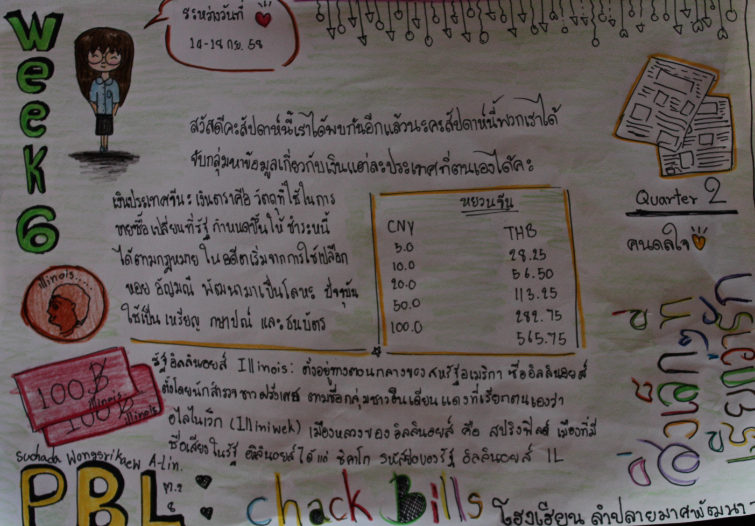 Week 6
ระหว่างวันที่
14-18 กย. 58
สวัสดีคะสัปดาห์นี้เราได้พบกันอีกแล้วนะคะสัปดาห์นี้พวกเราได้
จับกลุ่มหาข้อมูลเกี่ยวกับเงินแต่ละประเทศที่ตนเองได้คะ
Quarter 2
คนดลใจ
เงินประเทศจีน: เงินตราคือ วัตถุที่ใช้ในการ
ขายซื้อเปลี่ยนที่รัฐ กำหนดขึ้นใช้ ชำระหนี้
ได้ตามกฎหมาย ในอดีตเริ่มจากการใช้เปลือก
หอย อัญมณี พัฒนามาเป็นโลหะ ปัจจุบัน
ใช้เป็น เหรียญ กษาปณ์ และธนบัตร
หยวนจีน
CNY THB
5.0 28.25
10.0 56.50
20.0 113.25
50.0 282.75
100.0 565.75
illinois....
100 ฿
illinois
100 ฿
illinois
รัฐอิลลินอยส์ Illinois: ตั้งอยู่ทางตอนกลางของสหรัฐอเมริกา ชื่ออิลลินอยส์
ตั้งโดยนักสำรวจชาวฝรั่งเศส ตามชื่อกลุ่มชาวอินเดียนแดงที่เรียกตนเองว่า
อิไลไนเว็ก (Illiniwek) เมืองหลวงของ อิลลินอยส์ คือ สปริงฟิลด์ เมืองที่มี
ชื่อเสียงในรัฐ อิลลินอยส์ ได้แก่ ชิคาโก รหัสย่อของรัฐ อิลลินอยส์ IL
Suchada Wongsrikaew A-Lin.
PBL:
chack Bills
โรงเรียน ลำปลายมาศพัฒนา